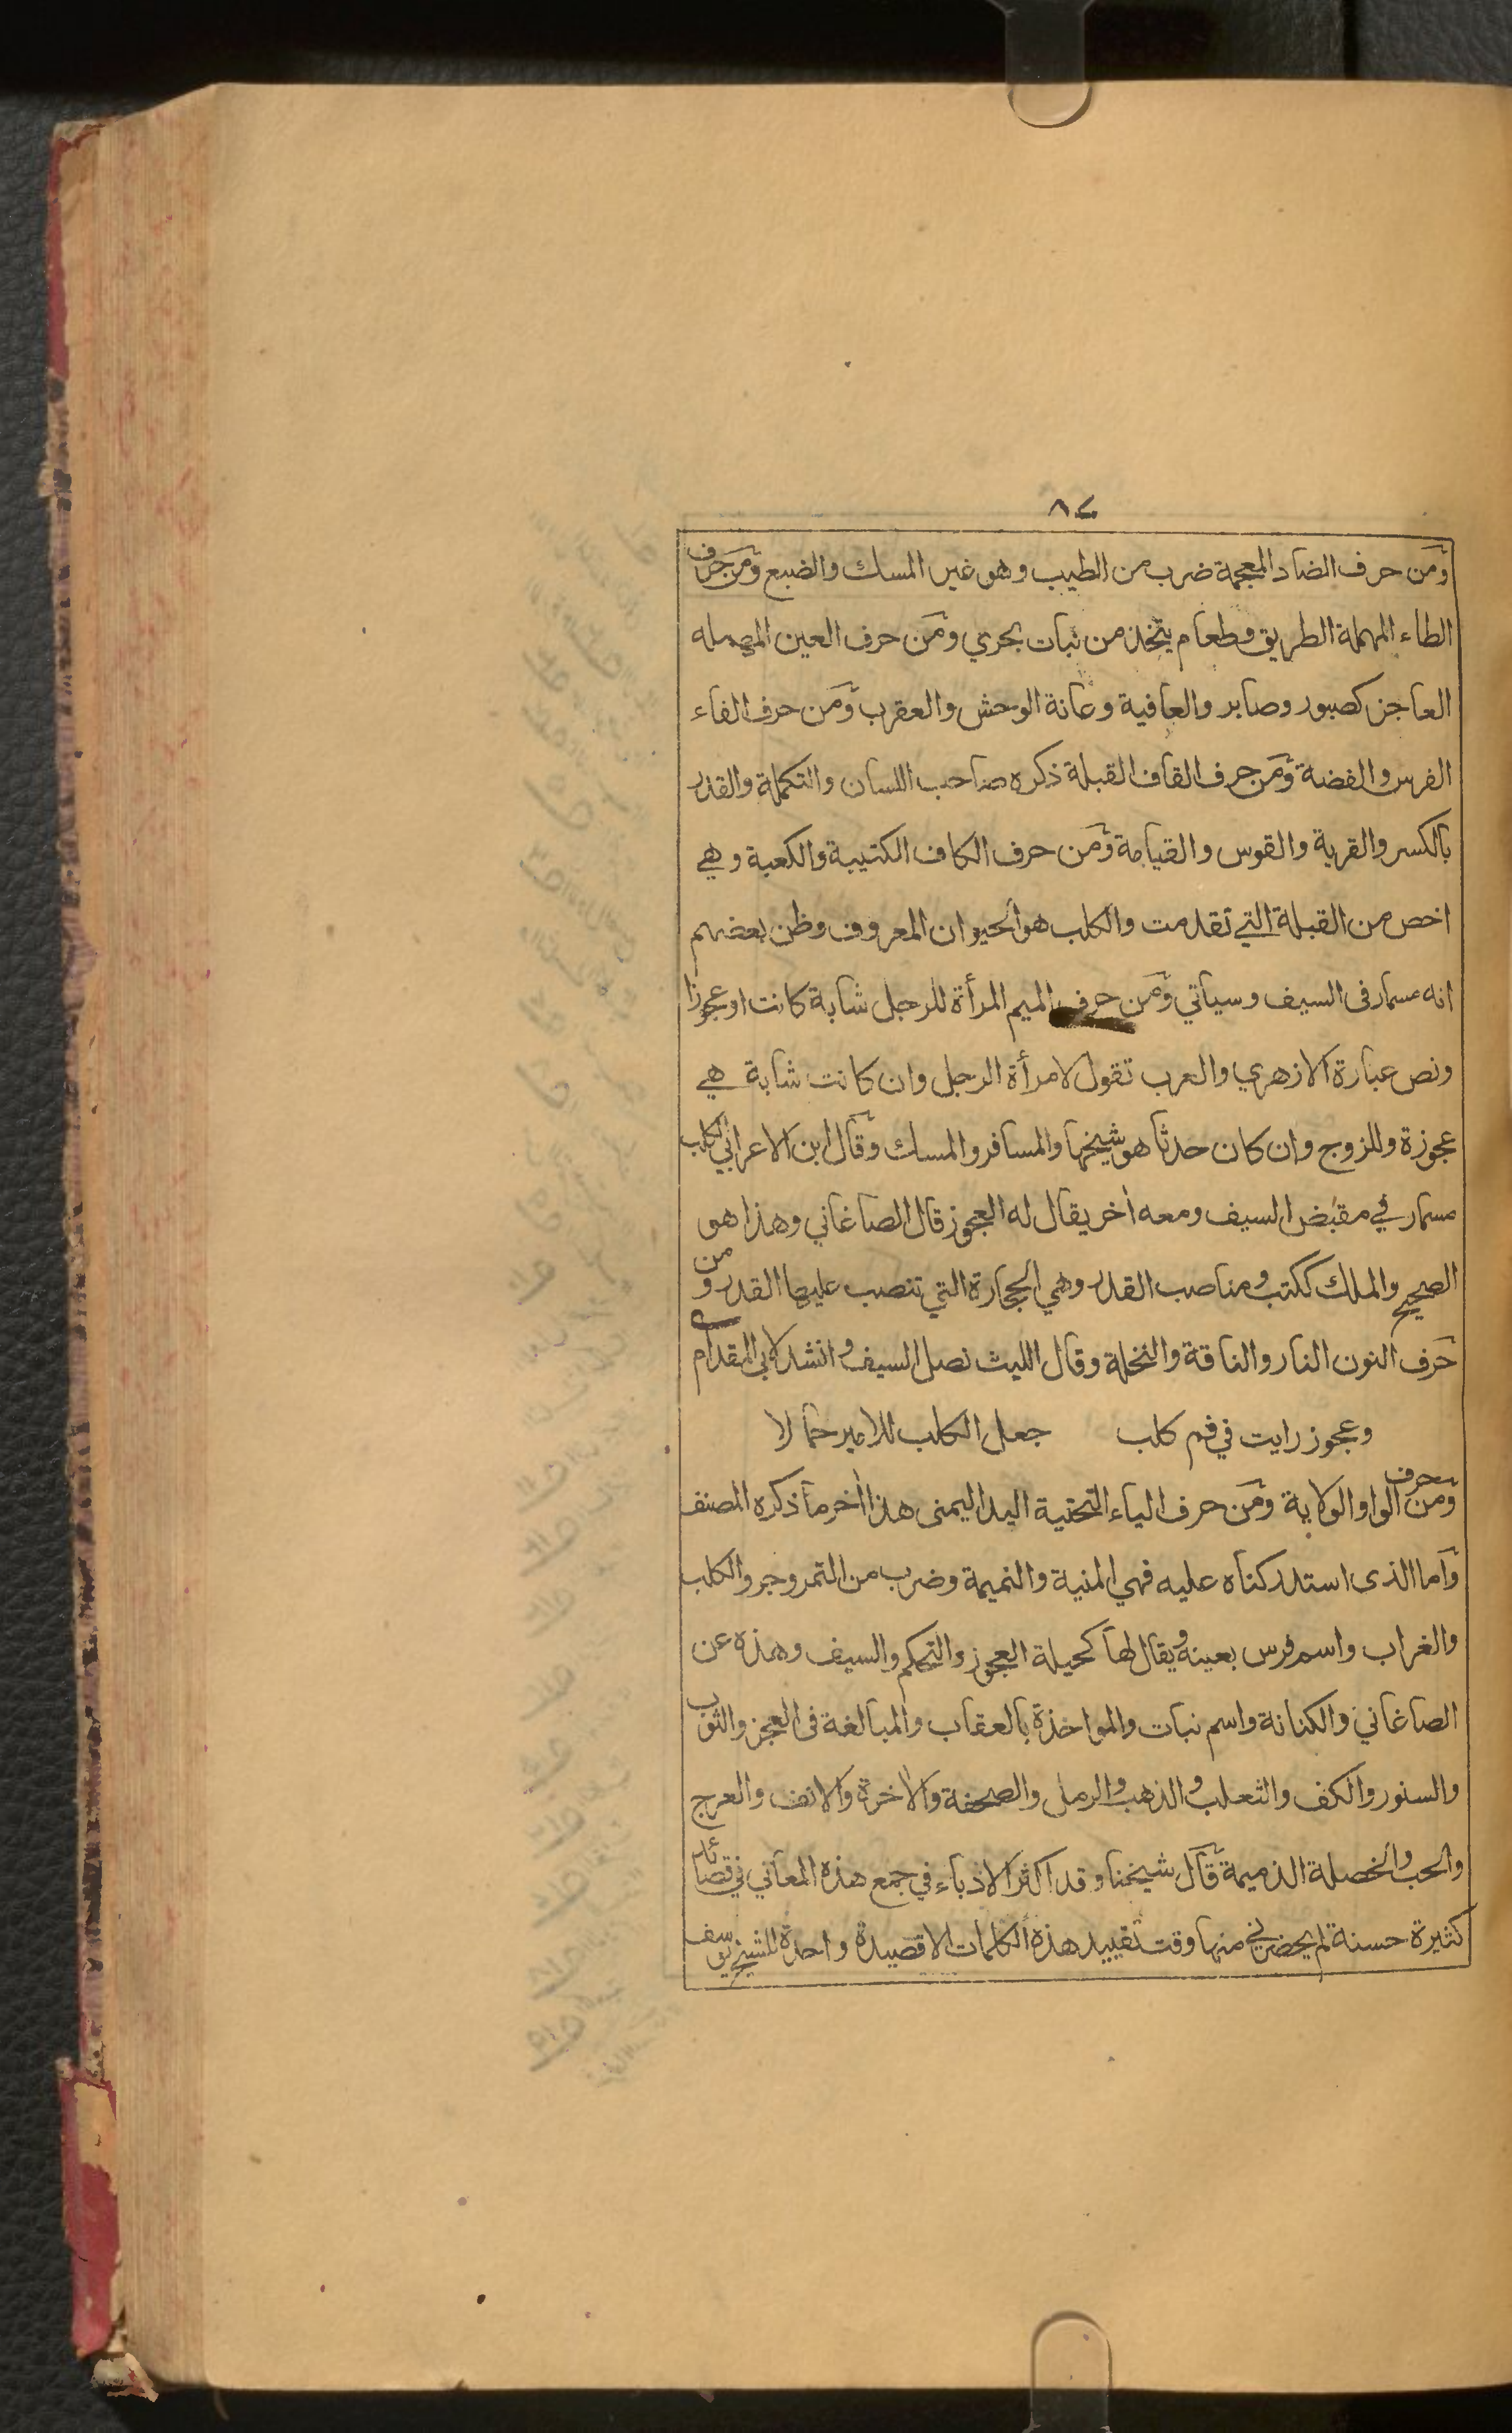 ٨٤
ومن حرف الضاد المعجمة ضرب من الطيب وهو غير المسك والضبع ومن حرف
الطاء المهملة الطريق وطعام يتخذ من نبات بحري ومن حرف العين المهمله
العاجز كصبور وصابر والعافية وعانة الوحش والعقرب ومن حرف الفاء
الفرس والفضة ومن حرف القاف القبلة ذكره صاحب اللسان والتكملة والقدر
بالكسر والقرية والقوس والقيامة ومن حرف الكاف الكتيبة والكعبة وهي
اخص من القبلة التي تقدمت والكلب هو الحيوان المعروف وظن بعضهم
انه مسمار فى السيف وسياتي ومن حرف الميم المرأة للرجل شابة كانت او عجوزا
ونص عبارة الازهري والعرب تقول لامرأة الرجل وان كانت شابة هي
عجوزة وللزوج وان كان حدثا هو شيخها والمسافر والمسك وقال ابن الاعرابي الكلب
مسمار في مقبض السيف ومعه أخر يقال له العجوز قال الصاغاني وهذا هو
الصحيح والملك ككتب ومناصب القدر وهي الحجارة التي تنصب عليها القدر ومن
حرف النون النار والناقة والنخلة وقال الليث نصل السيف وانشد لابي المقدام
وعجوز رايت في فم كلب جعل الكلب للامير حمالا
ومن حرف الواو الولاية ومن حرف الياء التحتية اليد اليمنى هذا أخر ما ذكره المصنف
وأما الذى استدركناه عليه فهي المنية والنميمة وضرب من التمر وجرو الكلب
والغراب واسم فرس بعينه ويقال لها كحيلة العجوز والتحكم والسيف وهذه عن
الصاغاني والكنانة واسم نبات والمواخذة بالعقاب والمبالغة فى العجز والثوب
والسنور والكف والثعلب والذهب والرمل والصحفة والأخرة والانف والعرج
والحب والخصلة الذميمة قال شيخنا وقد اكثر الادباء في جمع هذه المعاني في قصائد
كثيرة حسنة لم يحضرني منها وقت تقييد هذه الكلمات الا قصيدة واحدة للشيخ يوسف